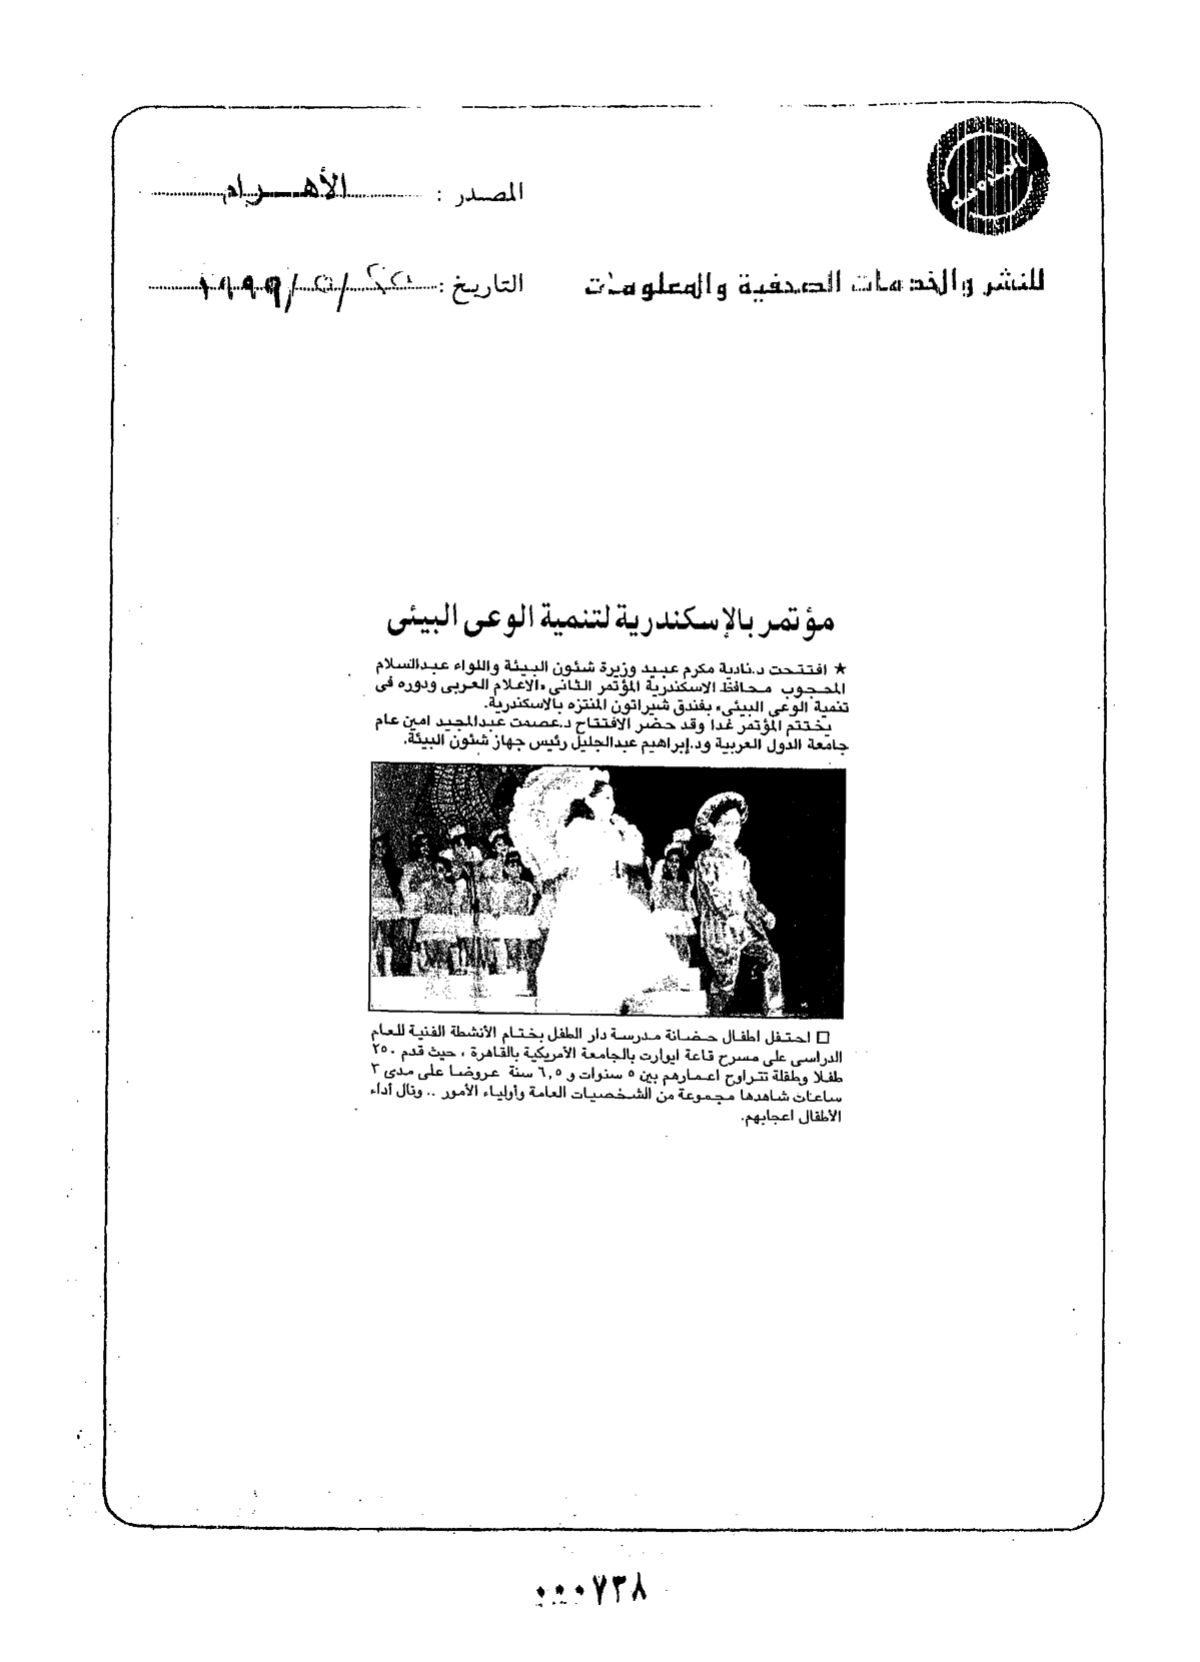 المصدر : الأهرام
للنشر والخدمات الصحفية والمعلومات
التاريخ : / ٥ / ١٩٩٩
مؤتمر بالإسكندرية لتنمية الوعى البيئى
★ افتتحت د.نادية مكرم عبيد وزيرة شئون البيئة واللواء عبدالسلام
المحجوب محافظ الاسكندرية المؤتمر الثانى «الاعلام العربى ودوره فى
تنمية الوعى البيئى» بفندق شيراتون المنتزه بالاسكندرية.
يختتم المؤتمر غدا وقد حضر الافتتاح د.عصمت عبدالمجيد امين عام
جامعة الدول العربية ود.إبراهيم عبدالجليل رئيس جهاز شئون البيئة.
□ احتفل اطفال حضانة مدرسة دار الطفل بختام الأنشطة الفنية للعام
الدراسى على مسرح قاعة ايوارت بالجامعة الأمريكية بالقاهرة ، حيث قدم ٢٥٠
طفلا وطفلة تتراوح اعمارهم بين ٥ سنوات و ٦,٥ سنة عروضا على مدى ٣
ساعات شاهدها مجموعة من الشخصيات العامة وأولياء الأمور .. ونال أداء
الأطفال اعجابهم.
٠٠٠٧٣٨